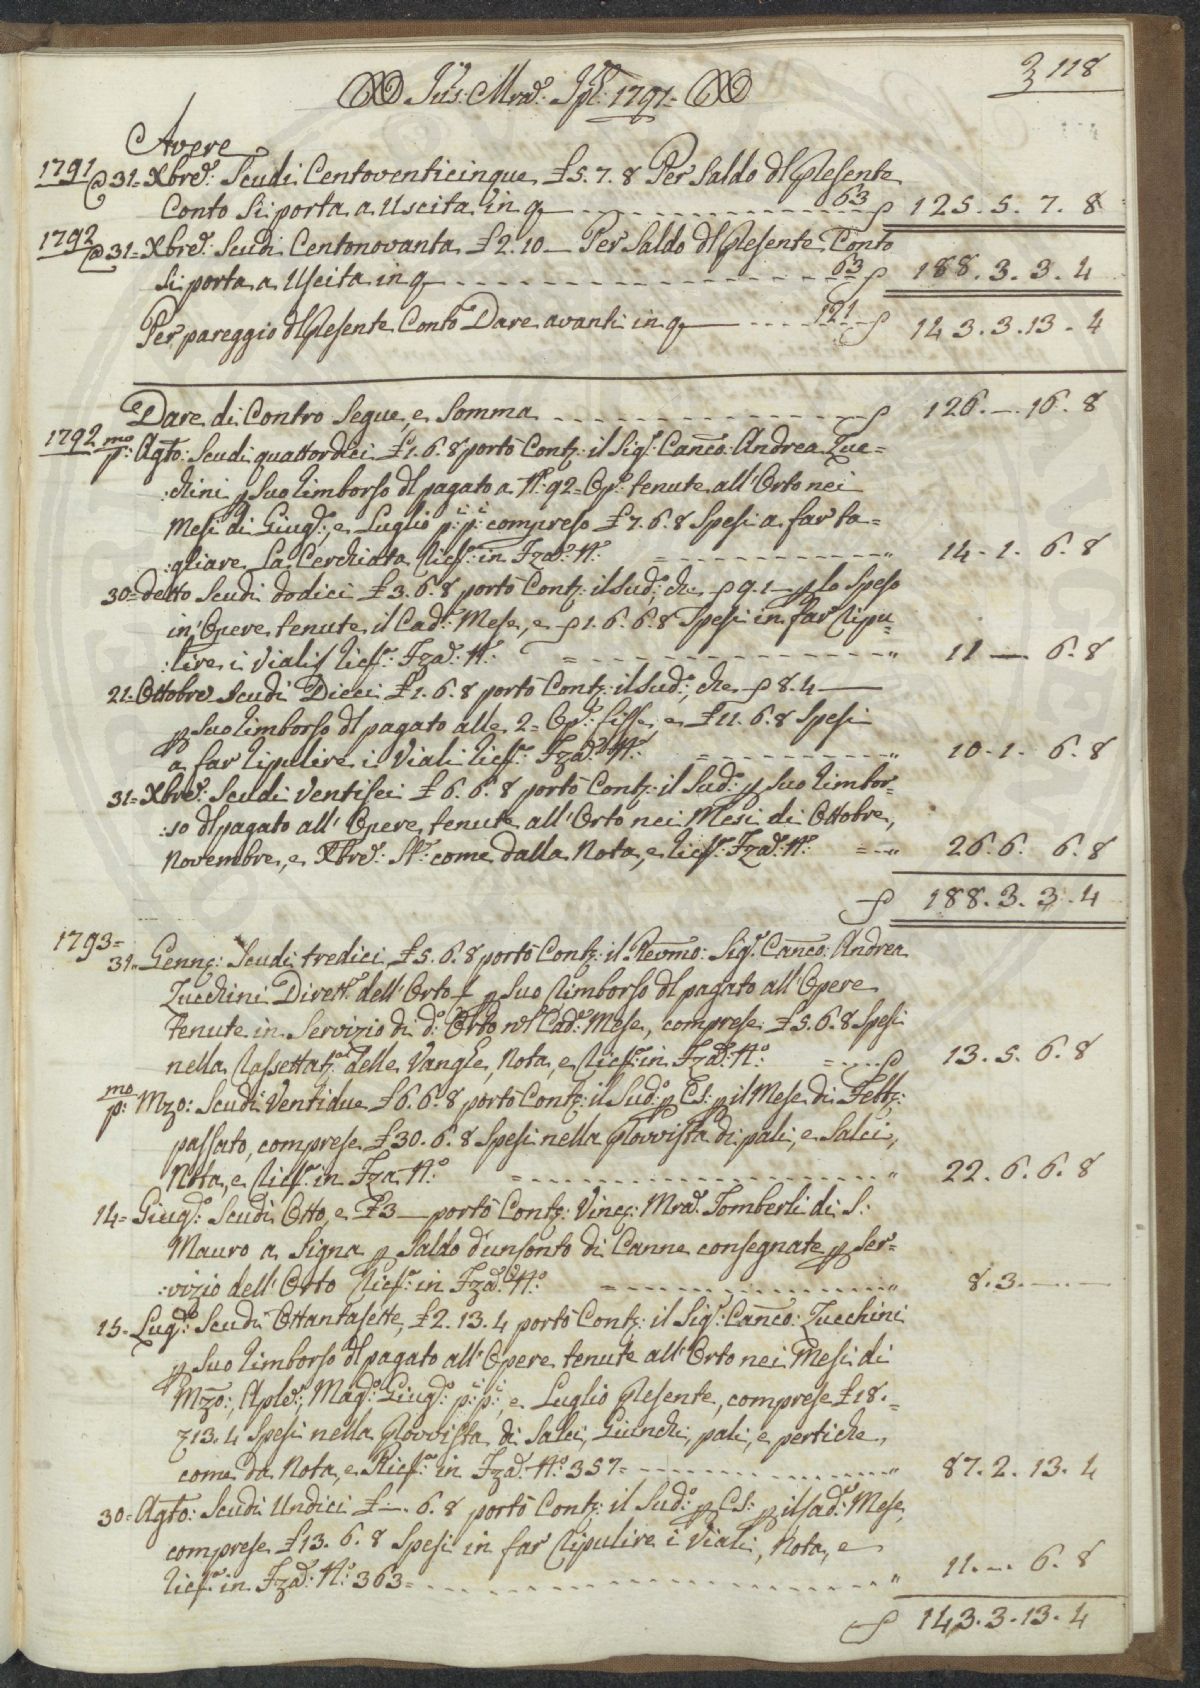 118
Jus: Mrd: Spl: 1791=
Avere
1791 @ 31= Xbre: Scudi Centoventicinque £5. 7. 8 Per Saldo dl presente
Conto Si porta a Uscita in q 63 125. 5. 7. 8
1792 @ 31= Xbre: Scudi Centonovanta £2. 10 — Per Saldo dl presente Conto
Si porta a Uscita in q 63 188. 3. 3. 4
Per pareggio dl presente Conto Dare avanti in q 121 143. 3. 13. 4
Dare di Contro Segue, e Somma 126. — 16. 8
1792 p:mo Agto: Scudi quattordici £1. 6. 8 portò Contj: il Sig.r Canco: Andrea Zuc=
:chini p Suo rimborso dl pagato a N.o 92= Op.e tenute all'Orto nei
Mesi di Giug.o, e Luglio p:i p:i compreso £7. 6. 8 Spesi a far ta=
:gliare La Cerchiata Ricev: in Fza: N.o 14. 1. 6. 8
30= detto Scudi dodici £3. 6. 8 portò Contj: il Sud.o, che 9. 1 — p lo Speso
in Opere tenute il Cad.o Mese, e 1. 6. 6. 8 Spesi in far Ripu=
:lire i Viali Ricev: Fza: N.o 11 — 6. 8
21= Ottobre Scudi Dieci £1. 6. 8 portò Contj: il Sud.o, che 8. 4 —
p Suo rimborso dl pagato alle 2= Op.e fisse, e £11. 6. 8 Spesi
a far ripulire i Viali Ricev: Fza: N.o 10. 1. 6. 8
31= Xbre: Scudi Ventisei £6. 6. 8 portò Contj: il Sud.o p Suo rimbor=
:so dl pagato all'Opere tenute all'Orto nei Mesi di Ottobre,
Novembre, e Xbre: St.e come dalla Nota, e Ricev: Fza: N.o 26. 6. 6. 8
188. 3. 3. 4
1793=
31= Genn: Scudi tredici £5. 6. 8 portò Contj: il Revmo: Sig.r Canco: Andrea
Zucchini Dirett.e dell'Orto p Suo rimborso dl pagato all'Opere
tenute in Servizio di d.o Orto nl Cad.o Mese, comprese £5. 6. 8 Spesi
nella Rassettat.a delle Vanghe, Nota, e Ricev: in Fza: N.o 13. 5. 6. 8
p:mo Mzo: Scudi Ventidue £6. 6. 8 portò Contj: il Sud.o p Cs: p il Mese di Febb:
passato, comprese £30. 6. 8 Spesi nella provvista di pali, e Salci,
Nota, e Ricev: in Fza N.o 22. 6. 6. 8
14= Giug.o: Scudi Otto, e £3 — portò Contj: Vinc: Mra: Tomberli di S:
Mauro a Signa p Saldo d'un Conto di Canne consegnate p Ser=
:vizio dell'Orto Ricev: in Fza: N.o 8. 3. —
15= Lug.o: Scudi Ottantasette, £2. 13. 4 portò Contj: il Sig.r Canco: Zucchini
p Suo rimborso dl pagato all'Opere tenute all'Orto nei Mesi di
Mzo:, Aple:, Mag.o: Giug.o p:i p:i, e Luglio presente, comprese £18.=
13. 4 Spesi nella provvista di Salci, Giunchi, pali, e pertiche,
come da Nota, e Ricev: in Fza: N.o 357= 87. 2. 13. 4
30= Agto: Scudi Undici £— 6. 8 portò Contj: il Sud.o p Cs: p il Sad.o Mese,
comprese £13. 6. 8 Spesi in far Ripulire i Viali, Nota, e
Ricev: in Fza: N.o 363= 11. — 6. 8
143. 3. 13. 4